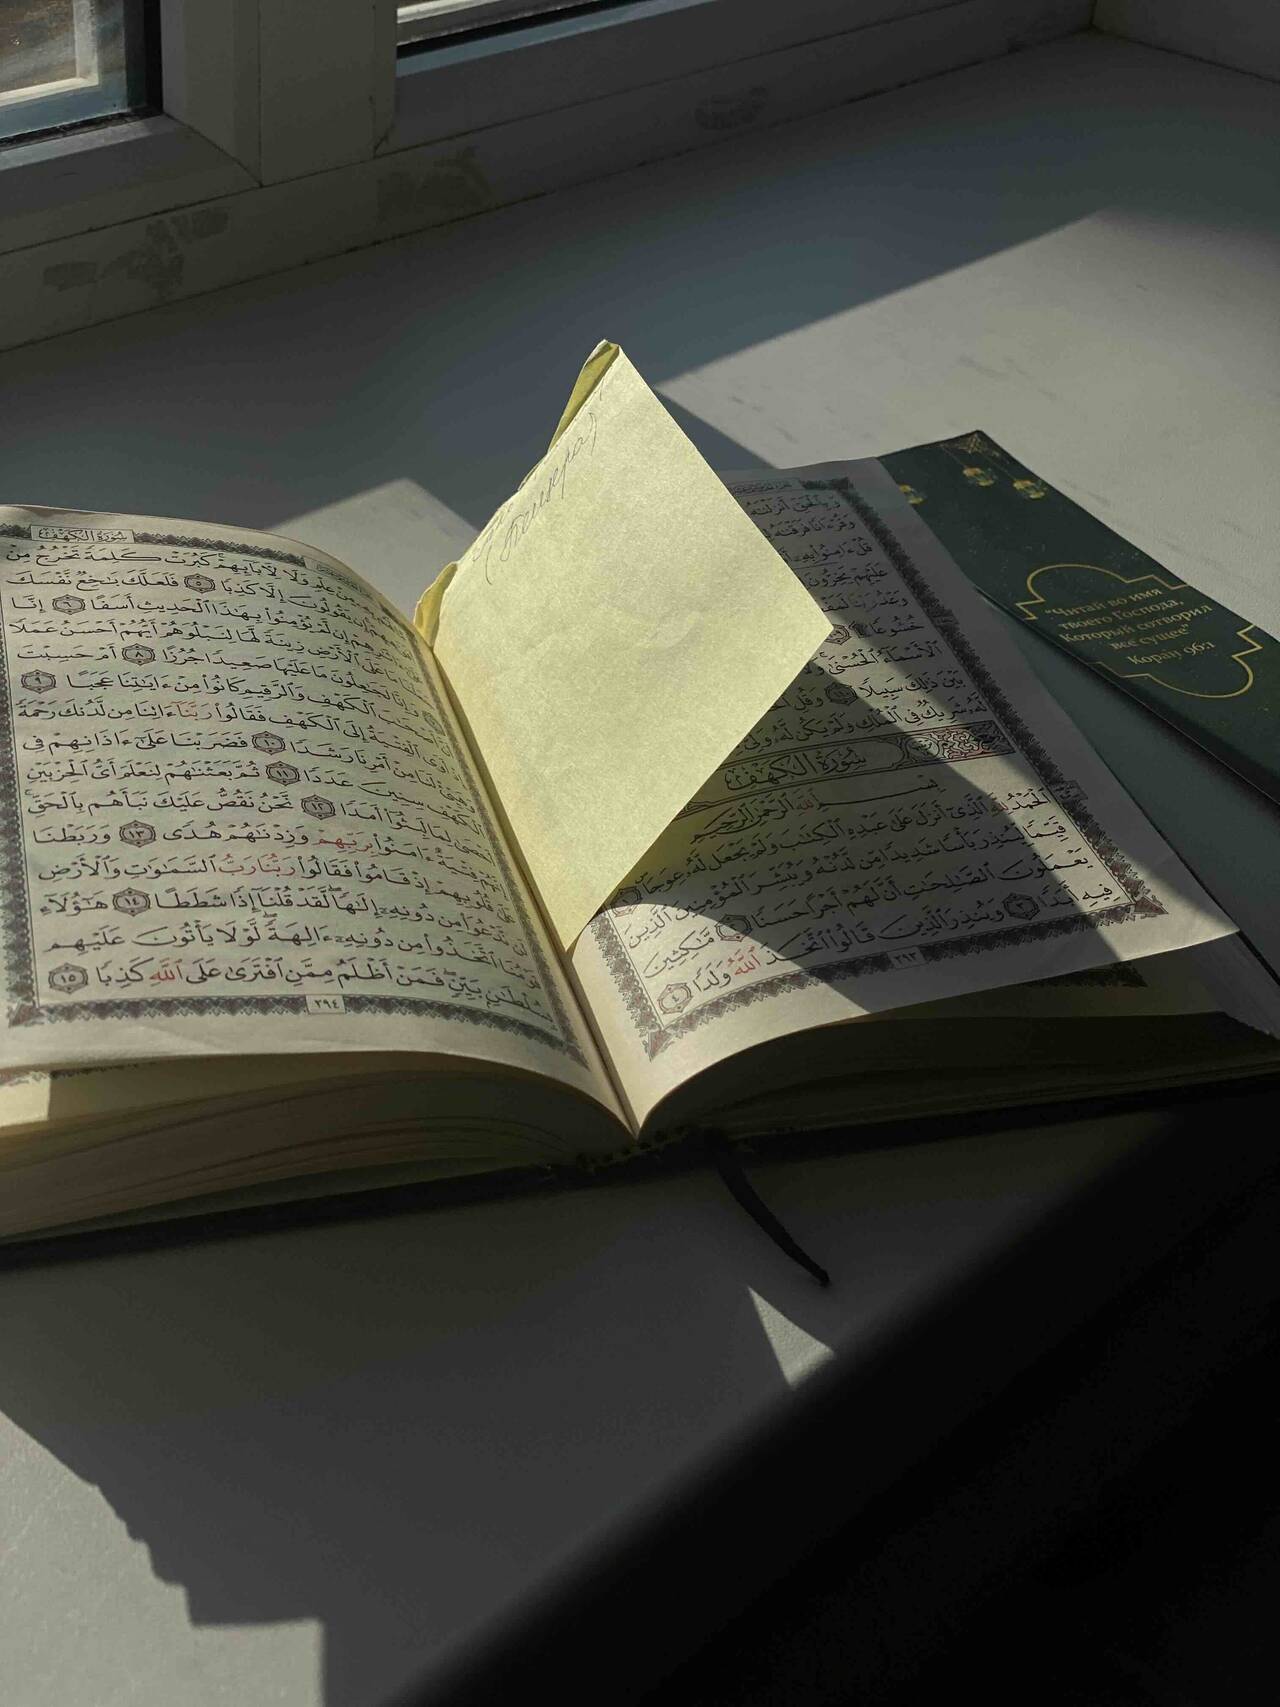 وَبِٱلْحَقِّ أَنزَلْنَٰهُ
وَقُرْءَانًا فَرَقْنَٰهُ
قُلْ ءَامِنُوا۟ بِهِۦٓ
عَلَيْهِمْ يَخِرُّونَ
وَعْدُ رَبِّنَا
خُشُوعًا
ٱلْأَسْمَآءُ ٱلْحُسْنَىٰ
بَيْنَ ذَٰلِكَ سَبِيلًا ١١٠ وَقُلِ
لَّهُۥ شَرِيكٌ فِى ٱلْمُلْكِ وَلَمْ يَكُن لَّهُۥ وَلِىٌّ
سُورَةُ الْكَهْفِ
بِسْمِ ٱللَّهِ ٱلرَّحْمَٰنِ ٱلرَّحِيمِ
ٱلْحَمْدُ لِلَّهِ ٱلَّذِىٓ أَنزَلَ عَلَىٰ عَبْدِهِ ٱلْكِتَٰبَ وَلَمْ يَجْعَل لَّهُۥ عِوَجَا ١
قَيِّمًا لِّيُنذِرَ بَأْسًا شَدِيدًا مِّن لَّدُنْهُ وَيُبَشِّرَ ٱلْمُؤْمِنِينَ ٱلَّذِينَ
يَعْمَلُونَ ٱلصَّٰلِحَٰتِ أَنَّ لَهُمْ أَجْرًا حَسَنًا ٢ مَّٰكِثِينَ
فِيهِ أَبَدًا ٣ وَيُنذِرَ ٱلَّذِينَ قَالُوا۟ ٱتَّخَذَ ٱللَّهُ وَلَدًا ٤
٢٩٣
سُورَةُ الْكَهْفِ
مِنْ عِلْمٍ وَلَا لِءَابَآئِهِمْ كَبُرَتْ كَلِمَةً تَخْرُجُ مِنْ
إِن يَقُولُونَ إِلَّا كَذِبًا ٥ فَلَعَلَّكَ بَٰخِعٌ نَّفْسَكَ
إِن لَّمْ يُؤْمِنُوا۟ بِهَٰذَا ٱلْحَدِيثِ أَسَفًا ٦ إِنَّا
مَا عَلَى ٱلْأَرْضِ زِينَةً لَّهَا لِنَبْلُوَهُمْ أَيُّهُمْ أَحْسَنُ عَمَلًا
وَإِنَّا لَجَٰعِلُونَ مَا عَلَيْهَا صَعِيدًا جُرُزًا ٨ أَمْ حَسِبْتَ
أَصْحَٰبَ ٱلْكَهْفِ وَٱلرَّقِيمِ كَانُوا۟ مِنْ ءَايَٰتِنَا عَجَبًا ٩
إِذْ أَوَى ٱلْفِتْيَةُ إِلَى ٱلْكَهْفِ فَقَالُوا۟ رَبَّنَآ ءَاتِنَا مِن لَّدُنكَ رَحْمَةً
وَهَيِّئْ لَنَا مِنْ أَمْرِنَا رَشَدًا ١٠ فَضَرَبْنَا عَلَىٰٓ ءَاذَانِهِمْ فِى
ٱلْكَهْفِ سِنِينَ عَدَدًا ١١ ثُمَّ بَعَثْنَٰهُمْ لِنَعْلَمَ أَىُّ ٱلْحِزْبَيْنِ
أَحْصَىٰ لِمَا لَبِثُوٓا۟ أَمَدًا ١٢ نَّحْنُ نَقُصُّ عَلَيْكَ نَبَأَهُم بِٱلْحَقِّ
إِنَّهُمْ فِتْيَةٌ ءَامَنُوا۟ بِرَبِّهِمْ وَزِدْنَٰهُمْ هُدًى ١٣ وَرَبَطْنَا
عَلَىٰ قُلُوبِهِمْ إِذْ قَامُوا۟ فَقَالُوا۟ رَبُّنَا رَبُّ ٱلسَّمَٰوَٰتِ وَٱلْأَرْضِ
لَن نَّدْعُوَا۟ مِن دُونِهِۦٓ إِلَٰهًا لَّقَدْ قُلْنَآ إِذًا شَطَطًا ١٤ هَٰٓؤُلَآءِ
قَوْمُنَا ٱتَّخَذُوا۟ مِن دُونِهِۦٓ ءَالِهَةً لَّوْلَا يَأْتُونَ عَلَيْهِم
بِسُلْطَٰنٍۭ بَيِّنٍ فَمَنْ أَظْلَمُ مِمَّنِ ٱفْتَرَىٰ عَلَى ٱللَّهِ كَذِبًا ١٥
٢٩٤
"Читай во имя
твоего Господа,
Который сотворил
все сущее"
Коран 96:1